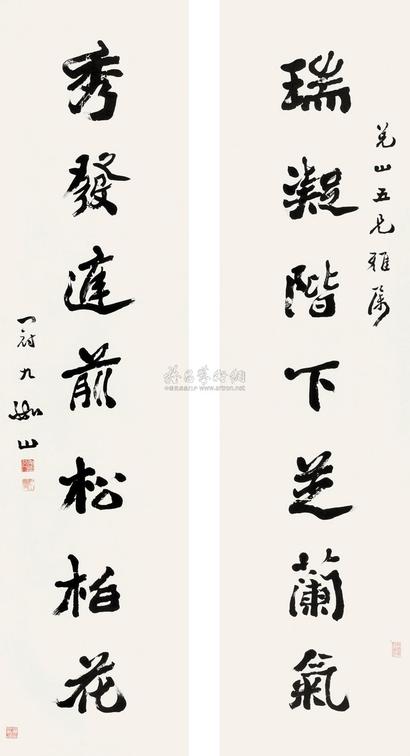 瑞凝階下芝蘭氣
五兄雅屬
秀發庭前松柏花
九
山
www.artron.net